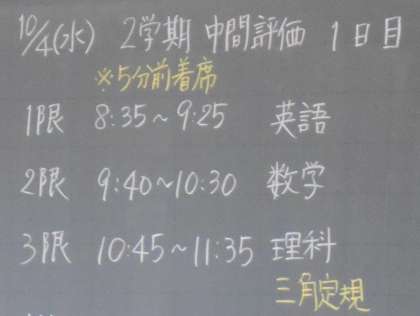 10/4(水) 2学期 中間評価 1日目
※5分前着席
1限 8:35~9:25 英語
2限 9:40~10:30 数学
3限 10:45~11:35 理科
三角定規